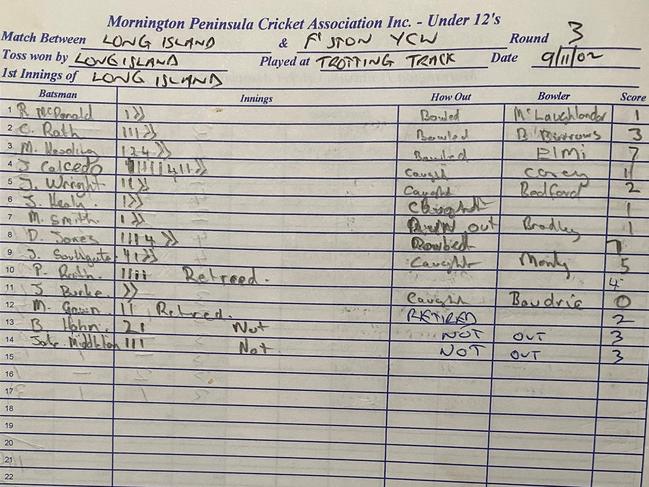 Mornington Peninsula Cricket Association Inc. - Under 12's
Match Between LONG ISLAND & F'STON YCW Round 3
Toss won by LONG ISLAND Played at TROTTING TRACK Date 9/11/02
1st Innings of LONG ISLAND
Batsman Innings How Out Bowler Score
1 R McDonald 1>> Bowled 1
2 C. Rath 111>> Bowled B Burrows 3
3 M. 124>> Bowled ELMI 7
4 J 1111411>> caught corey 11
5 J. Wright 11>> caught Bedford 2
6 J. Healy 1>> Caught 1
7 M. Smith 1>> RUN OUT Bradley 1
8 D. Jones 1114>> Bowled 7
9 J. Southgate 41>> Caught Monty 5
10 P. 1111 Retreed. 4
11 J. Burke >> Caught Baudrie 0
12 M. 11 Retired. RETIRED 2
13 B. Hahn 21 Not NOT OUT 3
14 Jake Middleton 111 Not. NOT OUT 3
15
16
17
18
19
20
21
22